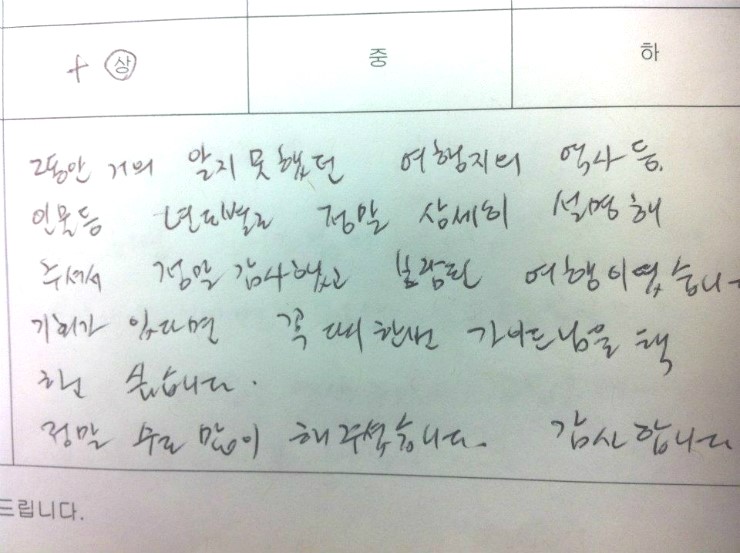 + 상 중 하
그동안 거의 알지 못했던 여행지의 역사 등,
인물등 년도별로 정말 상세히 설명해
주셔서 정말 감사했고 보람된 여행이었습니
기회가 있다면 꼭 다시한번 가이드님을 택
하고 싶습니다.
정말 수고 많이 해주셨습니다. 감사합니다
드립니다.